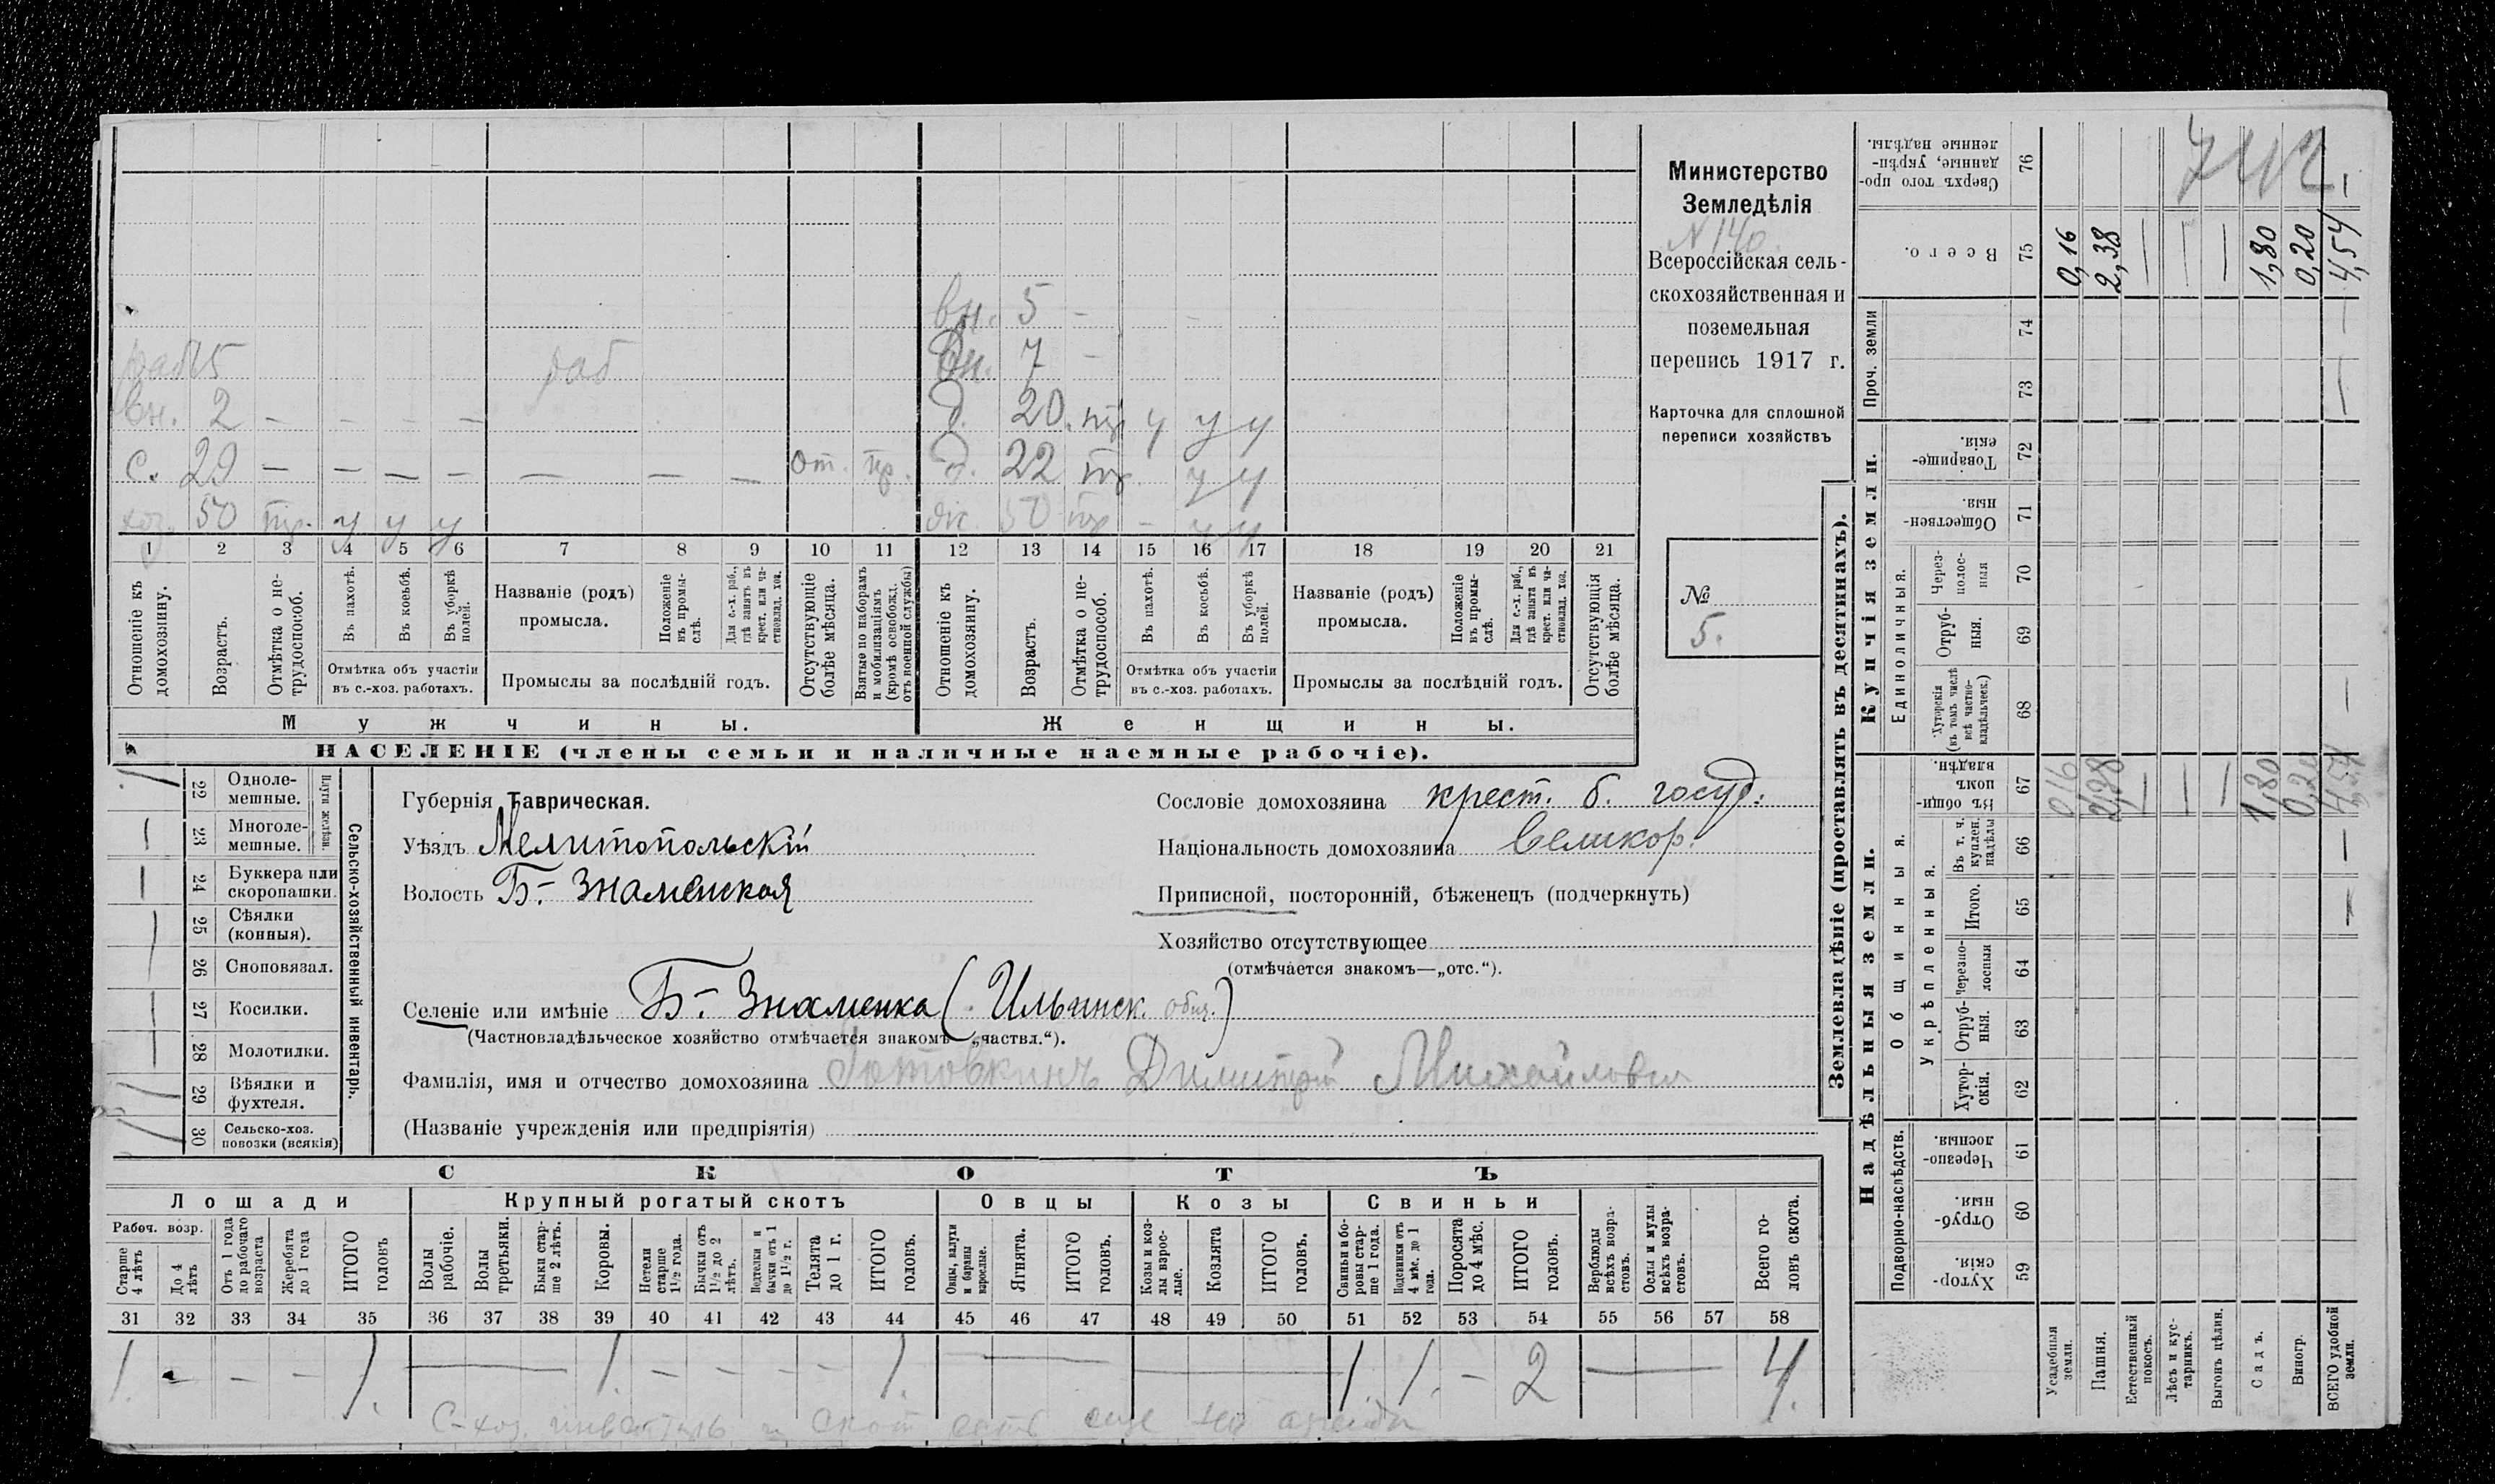 вн. 5 -  -
раб 15 раб вн. 7 -
вн. 2 - - - - д. 20. тр у у у
с. 29 - - - - - - - от. пр. д. 22 тр. у у
хоз. 50 тр. у у у ж. 50 тр - у у
1 2 3 4 5 6 7 8 9 10 11 12 13 14 15 16 17 18 19 20 21
Отношеніе къ домохозяину.
Возрастъ.
Отмѣтка о не-трудоспособ.
Въ пахотѣ.
Въ косьбѣ.
Въ уборкѣ полей.
Отмѣтка объ участіи
въ с.-хоз. работахъ.
Названіе (родъ)
промысла.
Положеніе въ промы-слѣ.
Для с.-х. раб., гдѣ занятъ въ крест. или ча-стновлад. хоз.
Промыслы за послѣдній годъ.
Отсутствующіе болѣе мѣсяца.
Взятые по наборамъ и мобилизаціямъ (кромѣ освобожд. отъ военной службы)
Отношеніе къ домохозяину.
Возрастъ.
Отмѣтка о не-трудоспособ.
Въ пахотѣ.
Въ косьбѣ.
Въ уборкѣ полей.
Отмѣтка объ участіи
въ с.-хоз. работахъ.
Названіе (родъ)
промысла.
Положеніе въ промы-слѣ.
Для с.-х. раб., гдѣ занята въ крест. или ча-стновлад. хоз.
Промыслы за послѣдній годъ.
Отсутствующія болѣе мѣсяца.
Мужчины.
Женщины.
НАСЕЛЕНІЕ (члены семьи и наличные наемные рабочіе).
Министерство
Земледѣлія
N 140.
Всероссійская сель-
скохозяйственная и
поземельная
перепись 1917 г.
Карточка для сплошной
переписи хозяйствъ
№
5.
22 Одноле-мешные.
23 Многоле-мешные.
Плуги желѣзн.
24 Буккера или скоропашки.
25 Сѣялки (конныя).
26 Сноповязал.
27 Косилки.
28 Молотилки.
29 Вѣялки и фухтеля.
30 Сельско-хоз. повозки (всякія)
Сельско-хозяйственный инвентарь.
Губернія Таврическая.
Уѣздъ Мелитопольскій
Волость Б.- Знаменская
Сословіе домохозяина крест. б. госуд.
Національность домохозяина Великор.
Приписной, посторонній, бѣженецъ (подчеркнуть)
Хозяйство отсутствующее
(отмѣчается знакомъ—„отс.“).
Селеніе или имѣніе Б.- Знаменка (Ильинск. общ.)
(Частновладѣльческое хозяйство отмѣчается знакомъ „частвл.“).
Фамилія, имя и отчество домохозяина Готовкинъ Димитрій Михайловъ
(Названіе учрежденія или предпріятія)
СКОТЪ
Лошади
Крупный рогатый скотъ
Овцы
Козы
Свиньи
Рабоч. возр.
Старше 4 лѣтъ
До 4 лѣтъ
Отъ 1 года до рабочаго возраста
Жеребята до 1 года
ИТОГО головъ
Волы рабочіе.
Волы третьяки.
Быки стар-ше 2 лѣтъ.
Коровы.
Нетели старше 1½ года.
Бычки отъ 1½ до 2 лѣтъ.
Нодтелки и бычки отъ 1 до 1½ г.
Телята до 1 г.
ИТОГО головъ.
Овцы, валухи и бараны взрослые.
Ягнята.
ИТОГО головъ.
Козы и коз-лы взрос-лые.
Козлята
ИТОГО головъ.
Свиньи и бо-ровы стар-ше 1 года.
Подсвинки отъ 4 мѣс. до 1 года.
Поросята до 4 мѣс.
ИТОГО головъ.
Верблюды всѣхъ возра-стовъ.
Ослы и мулы всѣхъ возра-стовъ.
Всего го-ловъ скота.
31 32 33 34 35 36 37 38 39 40 41 42 43 44 45 46 47 48 49 50 51 52 53 54 55 56 57 58
1. - - - 1. — 1. - - - - 1. — — 1. 1. - 2 — 4.
С-хоз. инвентарь и скот есть еще
Землевладѣніе (проставлять въ десятинахъ).
Надѣльныя земли.
Купчія земли.
Проч. земли
Подворно-наслѣдств.
Общинныя.
Укрѣпленныя.
Единоличныя.
Сверхъ того про-данные, укрѣп-ленные надѣлы. 76
Всего. 75
74
73
Товарище-скія. 72
Обществен-ныя. 71
Через-полос-ныя 70
Отруб-ныя. 69
Хуторскія (въ томъ числѣ всѣ частно-владѣльческ.) 68
Въ общин-номъ владѣн. 67
Въ т. ч. куплен. надѣлы 66
Итого. 65
Черезпо-лосныя 64
Отруб-ныя. 63
Хутор-скія. 62
Черезпо-лосныя. 61
Отруб-ныя. 60
Хутор-скія. 59
Усадебныя земли.
Пашня.
Естественный покосъ.
Лѣсъ и кус-тарникъ.
Выгонъ цѣлин.
Садъ.
Виногр.
ВСЕГО удобной земли.
0,16 2,38 — — — 1,80 0,20 4,54
0,16 2,38 — — — 1,80 0,20 4,54